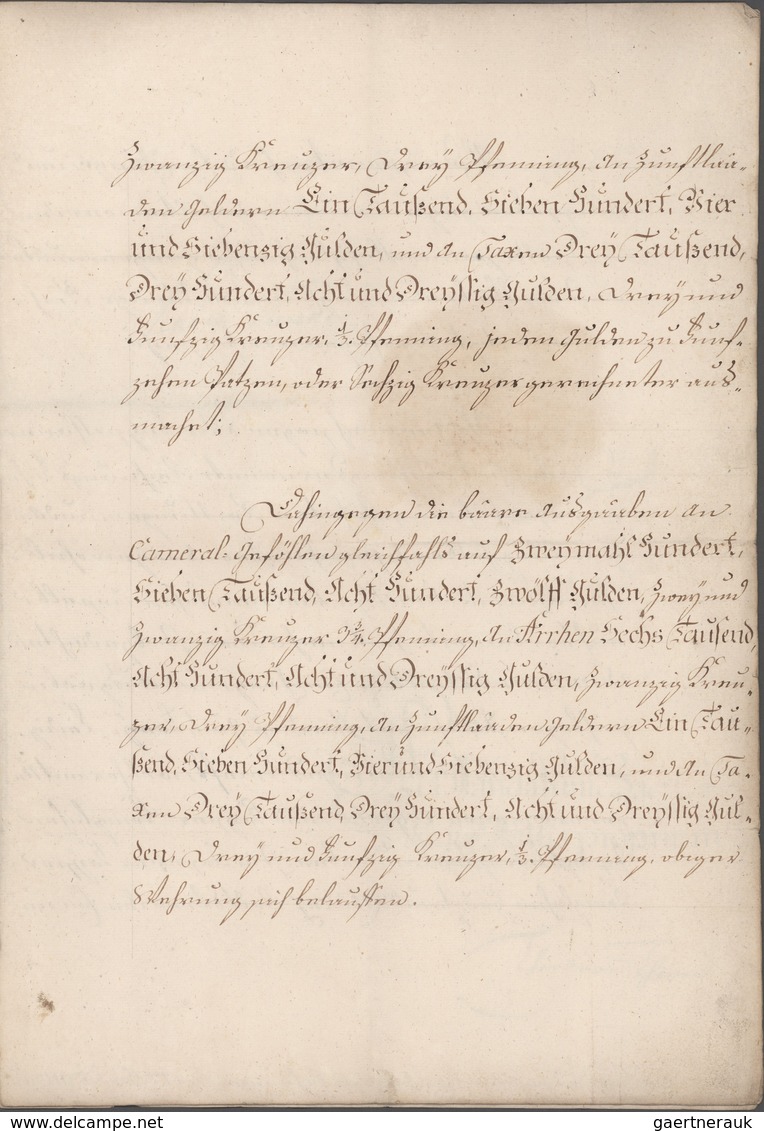 Zwanzig Kreuzer, Drey Pfenning, An Zunftlaa-
den Geldern Ein Taußend, Sieben Hundert, Vier
und Siebenzig Gulden, und An Taxen Drey Taußend,
Drey Hundert, Acht und Dreyssig Gulden, Drey und
Funfzig Kreuzer, 1/3. Pfenning, jeden Gulden zu Funf-
zehen Patzen, oder Sechzig Kreuzer gerechneter aus-
machet;
Dahingegen die baare Ausgaaben an
Cameral-Geföhlen gleichfahls auf Zweymahl Hundert,
Sieben Taußend, Acht Hundert, Zwölff Gulden, Zwey und
Zwanzig Kreuzer 3 3/4. Pfenning, An Arrhen Sechs Tausend,
Acht Hundert, Acht und Dreyssig Gulden, Zwanzig Kreu-
zer, Drey Pfenning, An Zunftlaaden Geldern Ein Tau-
ßend, Sieben Hundert, Vier und Siebenzig Gulden, und An Ta-
xen Drey Taußend, Drey Hundert, Acht und Dreyssig Gul-
den, Drey und Funfzig Kreuzer, 1/3. Pfenning, obiger
Wehrung sich belauffen.
www.delcampe.net
gaertnerauk